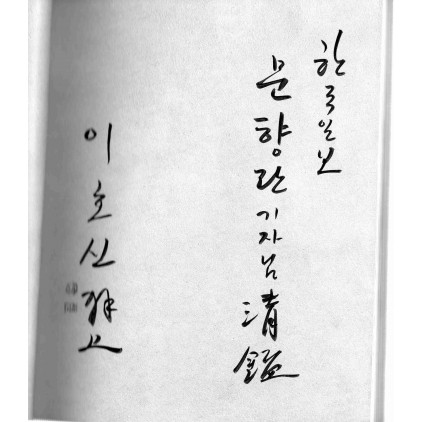 한국일보
문향란 기자님 清鑑
이호신 拜上